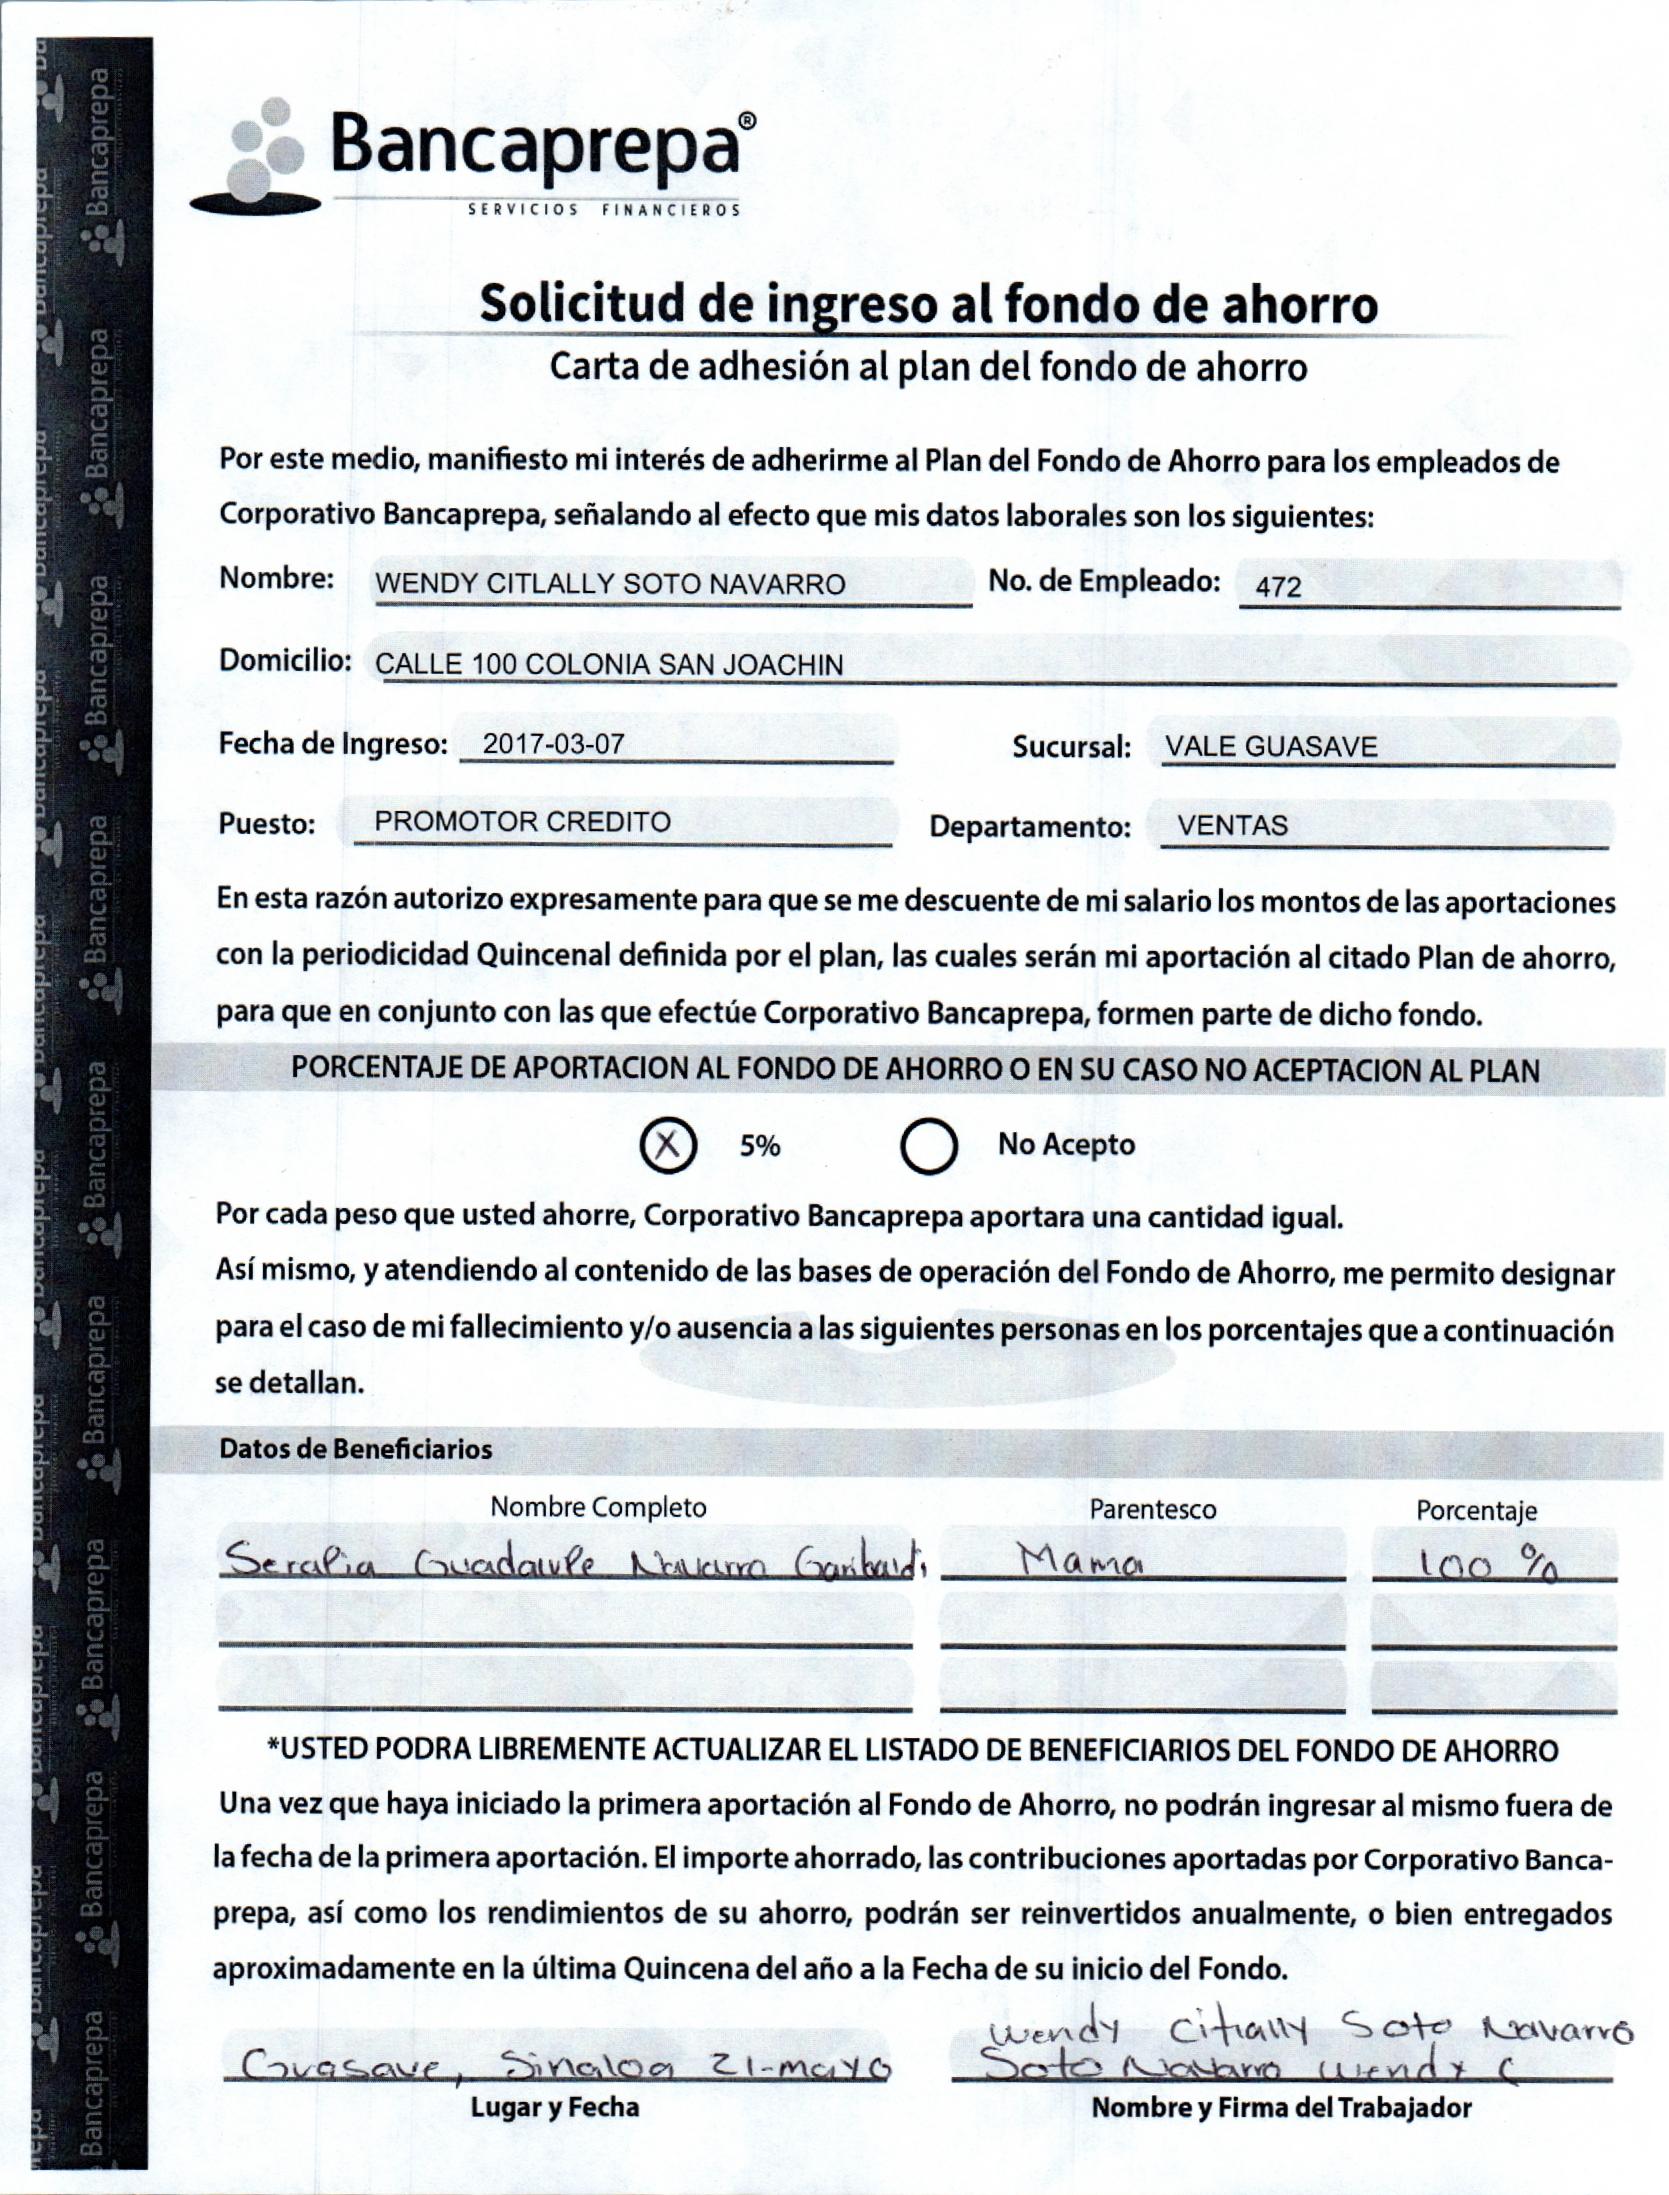 Bancaprepa®
SERVICIOS FINANCIEROS
Solicitud de ingreso al fondo de ahorro
Carta de adhesión al plan del fondo de ahorro
Por este medio, manifiesto mi interés de adherirme al Plan del Fondo de Ahorro para los empleados de
Corporativo Bancaprepa, señalando al efecto que mis datos laborales son los siguientes:
Nombre: WENDY CITLALLY SOTO NAVARRO No. de Empleado: 472
Domicilio: CALLE 100 COLONIA SAN JOACHIN
Fecha de Ingreso: 2017-03-07 Sucursal: VALE GUASAVE
Puesto: PROMOTOR CREDITO Departamento: VENTAS
En esta razón autorizo expresamente para que se me descuente de mi salario los montos de las aportaciones
con la periodicidad Quincenal definida por el plan, las cuales serán mi aportación al citado Plan de ahorro,
para que en conjunto con las que efectúe Corporativo Bancaprepa, formen parte de dicho fondo.
PORCENTAJE DE APORTACION AL FONDO DE AHORRO O EN SU CASO NO ACEPTACION AL PLAN
X 5% No Acepto
Por cada peso que usted ahorre, Corporativo Bancaprepa aportara una cantidad igual.
Así mismo, y atendiendo al contenido de las bases de operación del Fondo de Ahorro, me permito designar
para el caso de mi fallecimiento y/o ausencia a las siguientes personas en los porcentajes que a continuación
se detallan.
Datos de Beneficiarios
Nombre Completo Parentesco Porcentaje
Guadalupe Navarro Garibaldi Mama 100 %
*USTED PODRA LIBREMENTE ACTUALIZAR EL LISTADO DE BENEFICIARIOS DEL FONDO DE AHORRO
Una vez que haya iniciado la primera aportación al Fondo de Ahorro, no podrán ingresar al mismo fuera de
la fecha de la primera aportación. El importe ahorrado, las contribuciones aportadas por Corporativo Banca-
prepa, así como los rendimientos de su ahorro, podrán ser reinvertidos anualmente, o bien entregados
aproximadamente en la última Quincena del año a la Fecha de su inicio del Fondo.
Wendy Citlally Soto Navarro
Guasave, Sinaloa 21-mayo Soto Navarro Wendy C
Lugar y Fecha Nombre y Firma del Trabajador